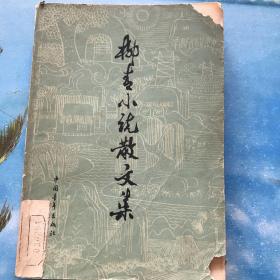 柳青小说散文集
中国青年出版社